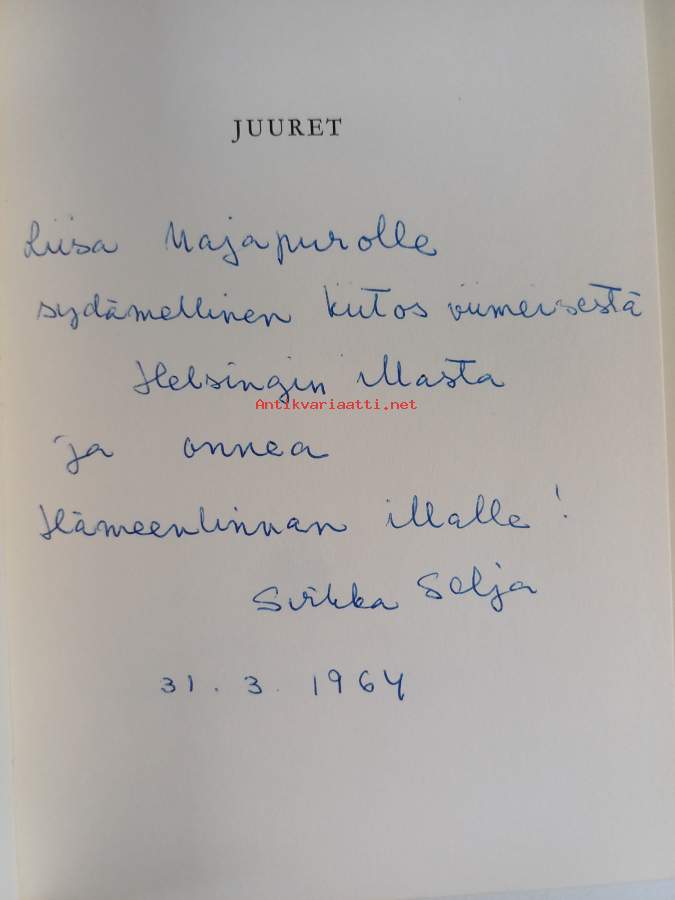 JUURET
Liisa Majapurolle
sydämellinen kiitos viimeisestä
Helsingin illasta
Antikvariaatti.net
ja onnea
Hämeenlinnan illalle!
Sirkka Selja
31.3.1964